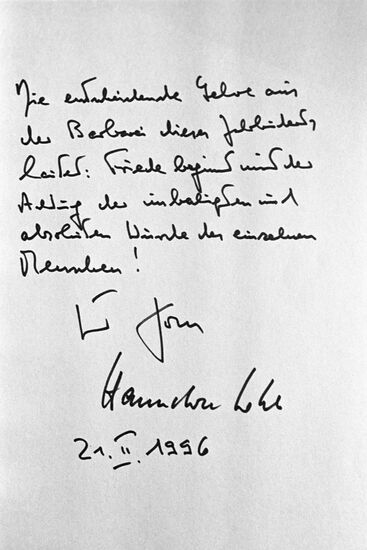 Die entscheidende Lehre aus
der Barbarei dieses Jahrhunderts
lautet: Friede beginnt mit der
Achtung der unbedingten und
absoluten Würde des einzelnen
Menschen!
Hannelore Kohl
21. II. 1996